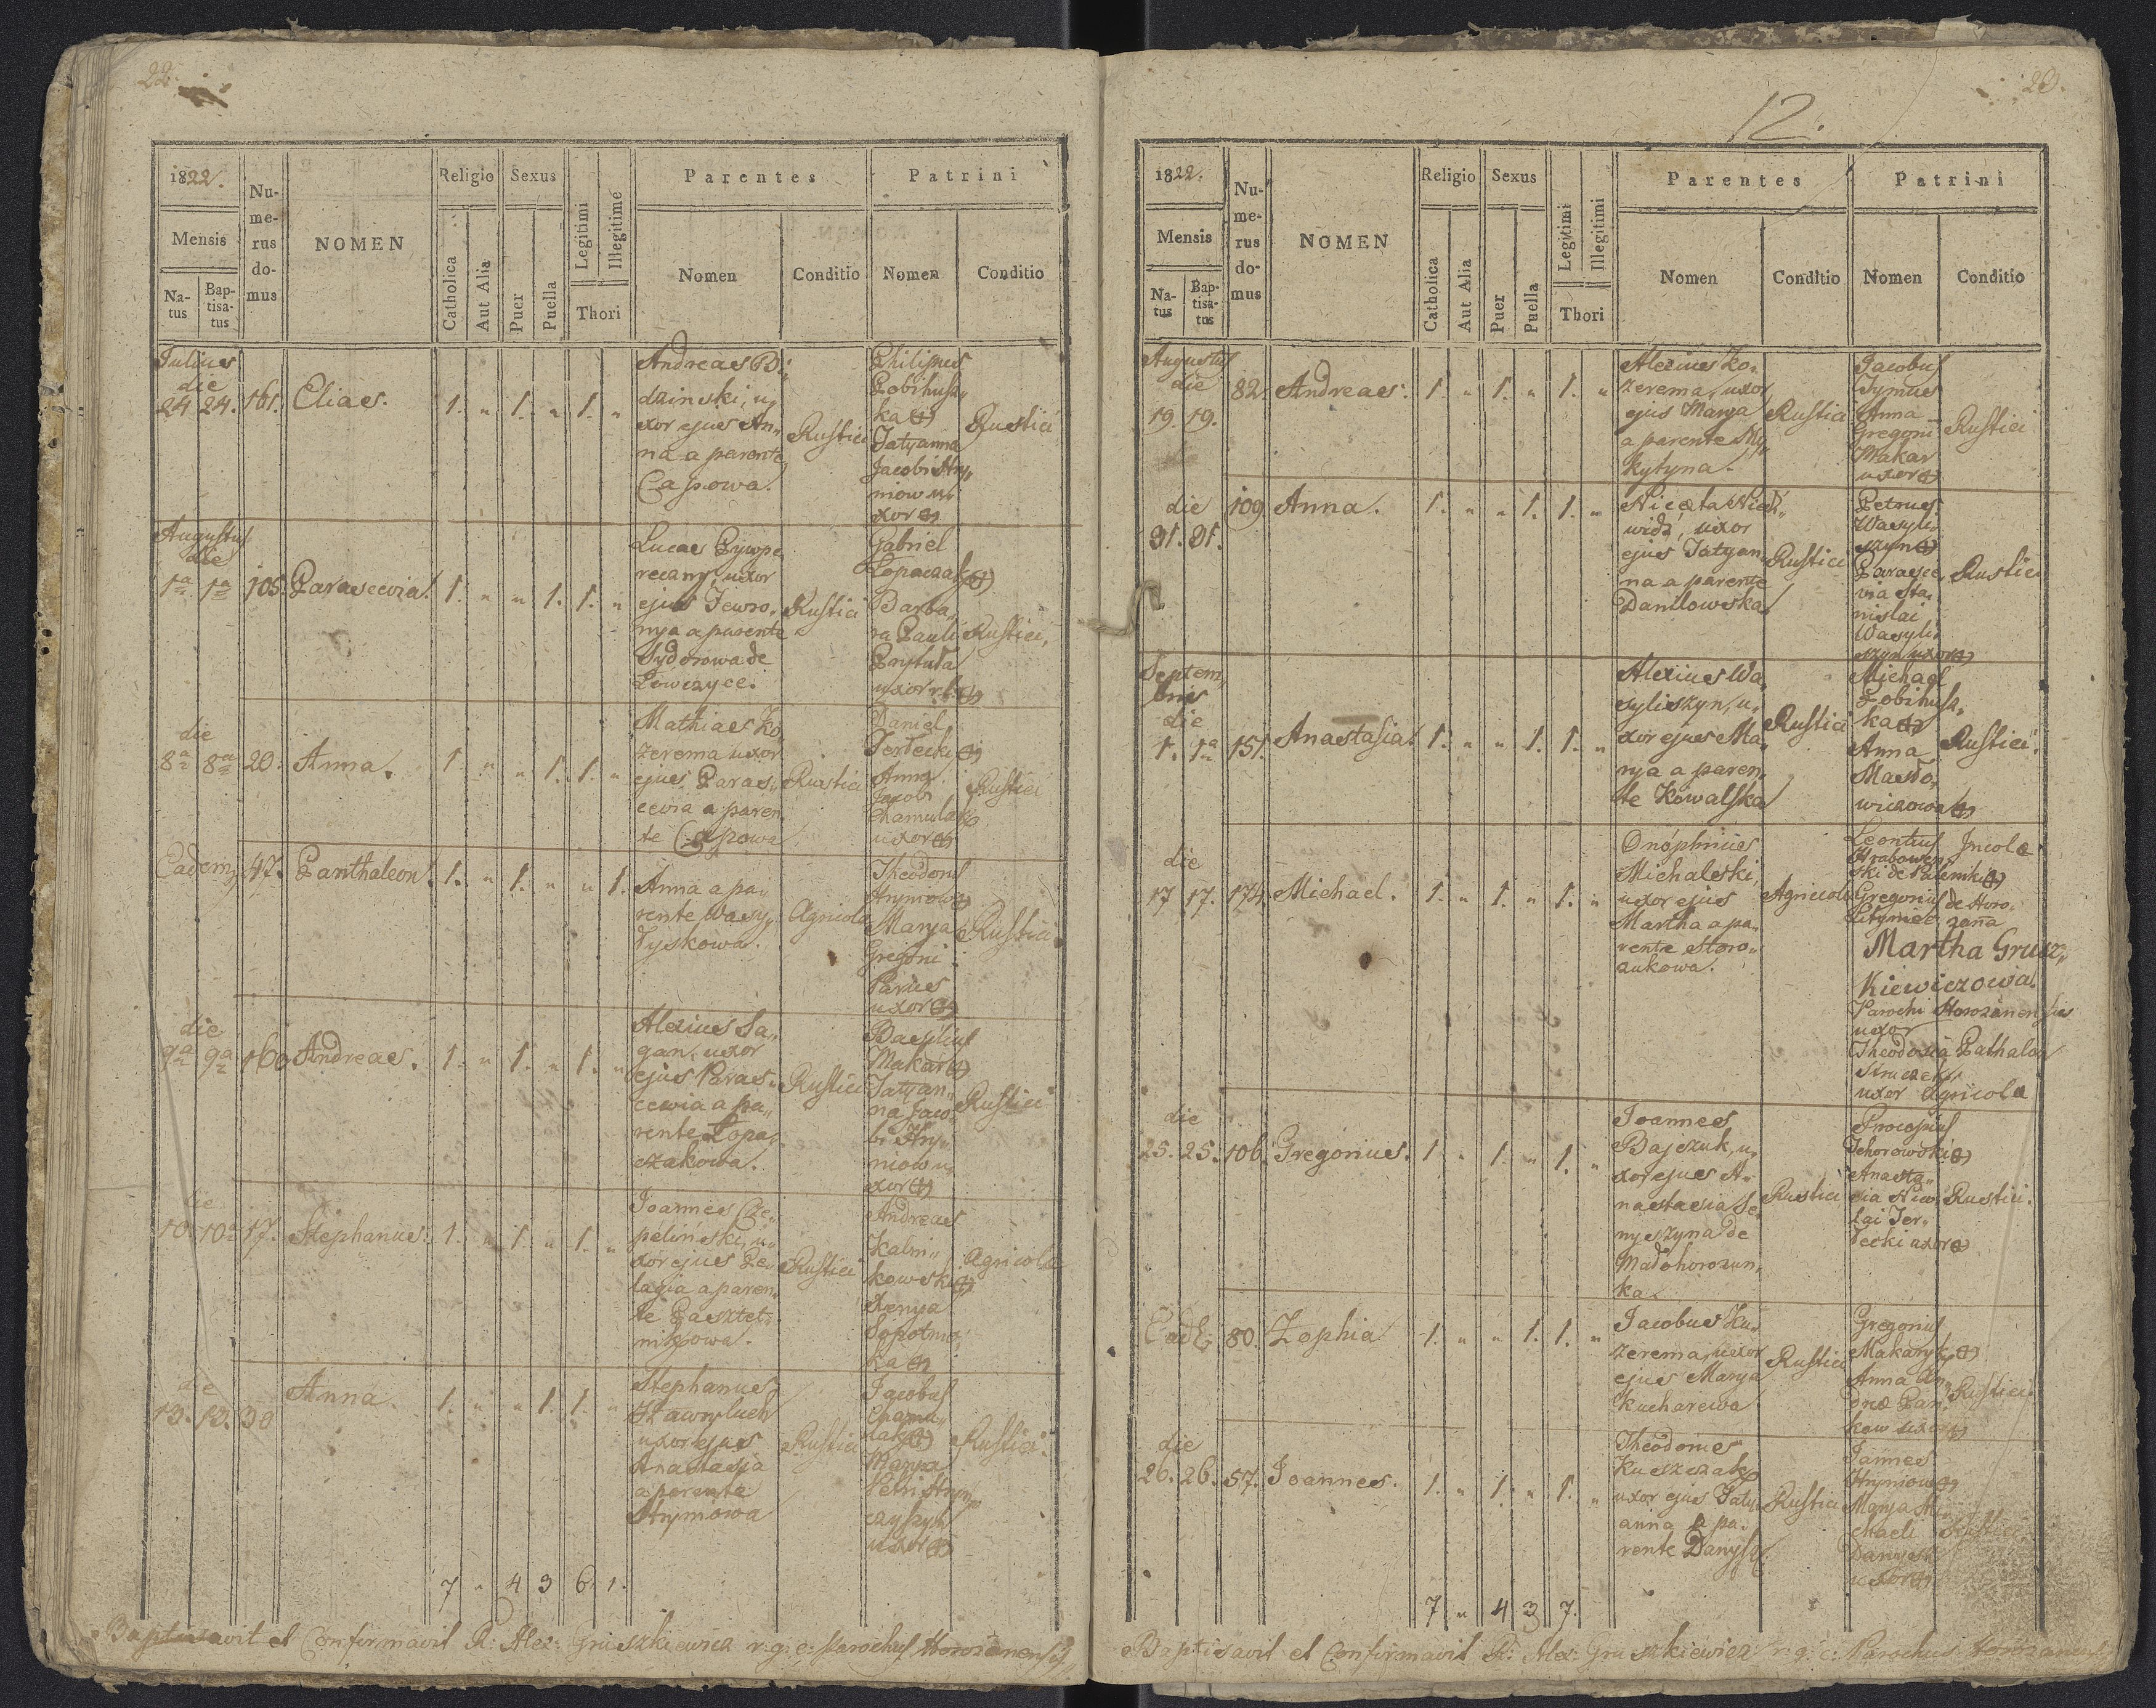 22.
1822.
Nu-
me-
rus
do-
mus
NOMEN
Religio
Sexus
Legitimi
Illegitime
Parentes
Patrini
Mensis
Na-
tus
Bap-
tisa-
tus
Catholica
Aut Alia
Puer
Puella
Thori
Nomen
Conditio
Nomen
Conditio
Julius
die
24 24. 161. Elias. 1. " 1. " 1. "
Andreas Bi,,
dzinski, u,,
xor ejus An,,
na a parente
Capowa.
Rustici
Philipus
Pobihusz,,
ka
Tatyanna
Jacobi Hry,,
niow u,,
xor
Rustici
Augustus
die
1a 1a 105. Parascevia. 1. " " 1. 1. "
Lucas Pywpe
reczny, uxor
ejus Jewro,,
nya a parente
Sydorowa de
Lowczyce.
Rustici
Gabriel
Lopaczak
Barba,,
ra Pauli
Prytuła
uxor
Rustici,
die
8a 8a 20. Anna. 1. " " 1. 1. "
Mathias Ko,,
zerema uxor
ejus Paras,,
cevia a paren,,
te Capowa
Rustici
Daniel
Terlecki
Anna
Jacobi
Chamulak
uxor
Rustici
Eadem 47. Panthaleon. 1. " 1. " " 1.
Anna a pa,,
rente Wasy,,
łyskowa.
Agricola
Theodorus
Hryniow
Marya
Gregorii
Parues
uxor
Rustici
die
9a 9a 160 Andreas. 1. " 1. " 1. "
Alexius Sa,,
gan, uxor
ejus Paras,,
cewia a pa,,
rente Lopa,,
czakowa.
Rustici
Basilius
Makar
Tatyan,,
na Jaco,,
bi Hry,,
niow u,,
xor
Rustici
die
10. 10a 17. Stephanus. 1. " 1. " 1. "
Joannes Cze,,
peliński, u,,
xor ejus Pe,,
lagia a paren,,
te Pasztet,,
nikowa.
Rustici
Andreas
Kalni,,
kowski
Xenya
Sopotnic,,
ka
Agricola
die
13. 13. 38 Anna. 1. " " 1. 1. "
Stephanus
Hawryluch
uxor ejus
Anastasia
a parente
Hryniowa
Rustici
Jacobus
Chamu,,
lak
Marya
Petri Hryn,,
czyszyn
uxor
Rustici.
7 " 4 3 6. 1.
Baptisavit et Confirmavit R: Alex: Gruszkiewicz r. g. c. Parochus Horozanensis
23.
12.
1822.
Nu-
me-
rus
do-
mus
NOMEN
Religio
Sexus
Legitimi
Illegitimi
Parentes
Patrini
Mensis
Na-
tus
Bap-
tisa-
tus
Catholica
Aut Alia
Puer
Puella
Thori
Nomen
Conditio
Nomen
Conditio
Augustus
die
19. 19. 82. Andreas. 1. " 1. " 1. "
Alexius Ko,,
zerema, uxor
ejus Marya
a parente My,,
kytyna.
Rustici
Jacobus
Symus
Anna
Gregorii
Makar
uxor
Rustici
die
31. 31. 109. Anna. 1. " " 1. 1. "
Niceta Niedź,,
widź, uxor
ejus Tatyan,,
na a parente
Danilowska
Rustici
Petrus
Wasyli,,
szyn
Parasce,,
via Sta,,
nislai
Wasyli,,
szyn uxor
Rustici
Septem,,
bris
die
1. 1a 151. Anastasia. 1. " " 1. 1. "
Alexius Wa,,
syliszyn, u,,
xor ejus Ma,,
rya a paren,,
te Kowalska
Rustici
Michael
Pobihusz,,
ka
Anna
Masło,,
wiczowa
Rustici.
die
17 17. 174. Michael. 1. " 1. " 1. "
Onophrius
Michaleski,
uxor ejus
Martha a pa,,
rente Horo,,
dukowa.
Agricola
Leontius Incola
Hrabowen,,
ski de
Gregorius de Horo,,
zana
Martha Grusz,,
kiewiczowa.
Parochi Horozanensis
uxor
Theodosia Pathalon
uxor Agricola
die
25. 25. 106. Gregorius. 1. " 1. " 1. "
Joannes
Bajczuk, u,,
xor ejus A,,
nastasia Se,,
nyszyna de
Małohorozan,,
ka.
Rustici
Procopius
Tchorowski
Anasta,,
sia Nico,,
lai Ter,,
lecki uxor
Rustici.
Ead: 80. Zophia 1. " " 1. 1. "
Jacobus Ku,,
zerema, uxor
ejus Marya
Kucharewa
Rustici
Gregorius
Makaryk
Anna An,,
dreæ Pan,,
kow uxor
Rustici
die
26. 26. 57. Joannes. 1. " 1. " 1. "
Theodorus
Kuszczak
uxor ejus Taty,,
anna a pa,,
rente Danysz
Rustici
Jannes
Hryniow
Marya Mi,,
chaeli
Danyszy
uxor
Rustici
7 " 4 3 7.
Baptisavit et Confirmavit R: Alex: Gruszkiewicz r. g. c: Parochus Horozanensis